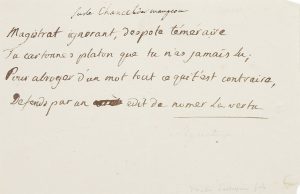 sur le Chancelier maupeou
Magistrat ignorant, despote téméraire
Tu cartonnes platon que tu n'as jamais lu;
Pour abroger d'un mot tout ce qui t'est contraire,
Defends par un edit de nomer La vertu